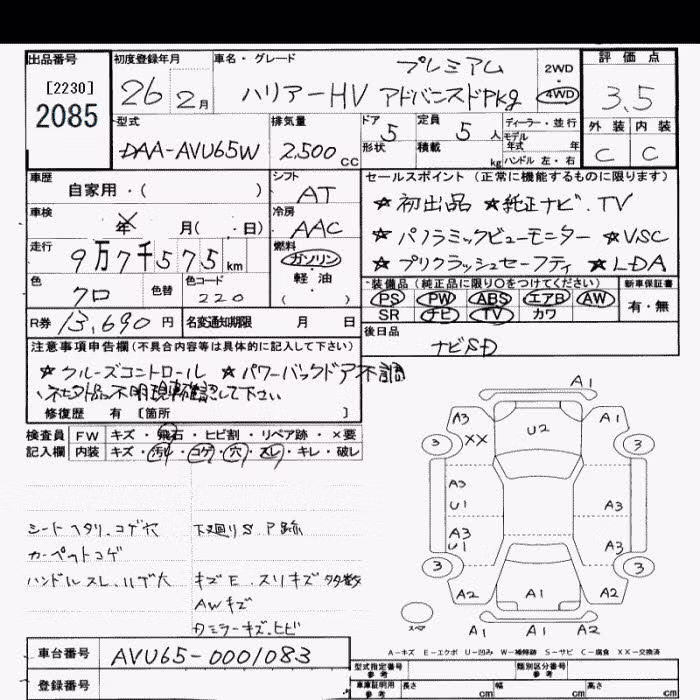 出品番号 初度登録年月 車名・グレード 評価点
[2230] 2085
26 2月 ハリアーHV プレミアム アドバンスドPKg 2WD 4WD 3.5
外装 内装
C C
型式 排気量 ドア 定員 ディーラー・並行
DAA-AVU65W 2,500cc 5 5人 モデル年式 年
形状 積載 kg ハンドル 左・右
車歴 シフト セールスポイント(正常に機能するものに限ります)
自家用・( ) AT ★初出品 ★純正ナビ.TV
車検 冷房 ★パノラミックビューモニター ★VSC
年 月(・日) AAC ★プリクラッシュセーフティ ★LDA
走行 燃料
9万7千575km ガソリン
軽・油
( )
装備品(純正品に限り○をつけてください) 新車保証書
PS PW ABS エアB AW 有・無
SR ナビ TV カワ
色 色替 色コード
クロ 220
後日品
ナビSD
R券 13,690円 名変通知期限 月 日
注意事項申告欄(不具合内容等は具体的に記入して下さい)
★クルーズコントロール ★パワーバックドア不調
不明 現車確認して下さい
修復歴 有 [箇所 ]
検査員 FW キズ・飛石・ヒビ割・リペア跡・×要
記入欄 内装 キズ・汚レ・コゲ・穴・スレ・キレ・破レ
シートヘタリ.コゲ穴 下廻りS.P跡
カーペットコゲ
ハンドルスレ. キズE.スリキズ多数
AWキズ
ミラーキズ.ヒビ
A1
A3 A1
XX U2
3 3
A3
U1 A3
A3
U1 A3
3 3
A2 A1 A2
スペア A1 A1 A2
A-キズ E-エクボ U-凹み W-補修跡 S-サビ C-腐食 XX-交換済
車台番号 AVU65-0001083
型式指定番号 参考 類別区分番号 参考
登録番号
車庫証明用 参考 長さ cm 幅 cm 高さ cm